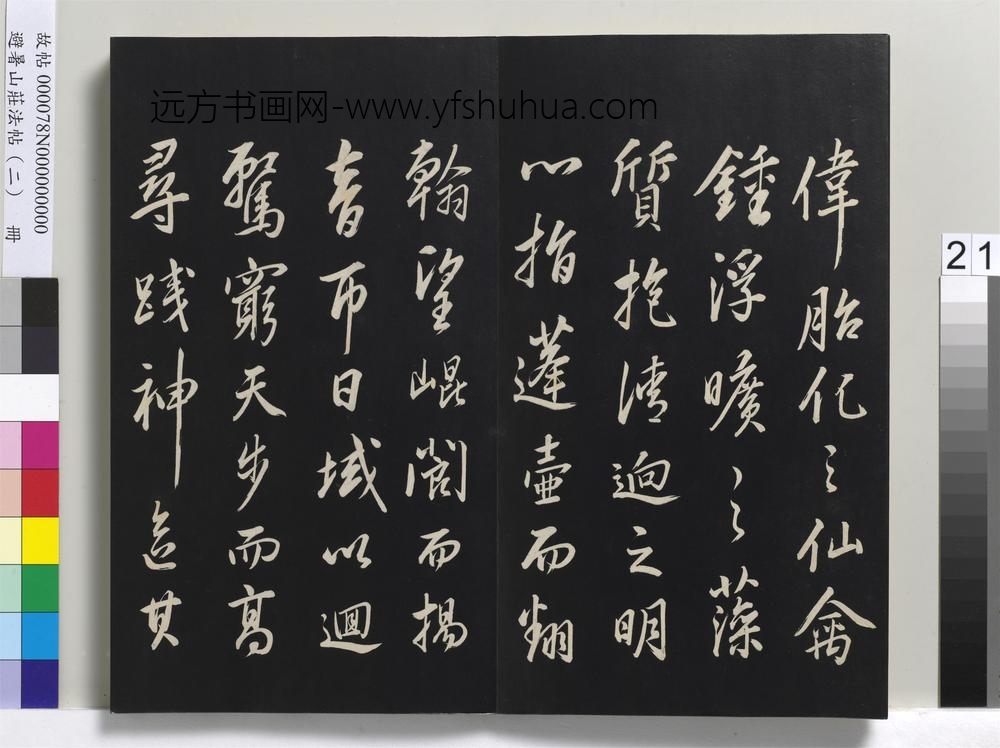 偉胎化之仙禽
鍾浮曠之藻
質抱清迥之明
心指蓬壷而翻
翰望崐閬而揚
音帀日域以迴
騖窮天步而高
尋踐神區其
远方书画网-www.yfshuhua.com
故帖 000078N000000000
避暑山莊法帖（二） 冊
21